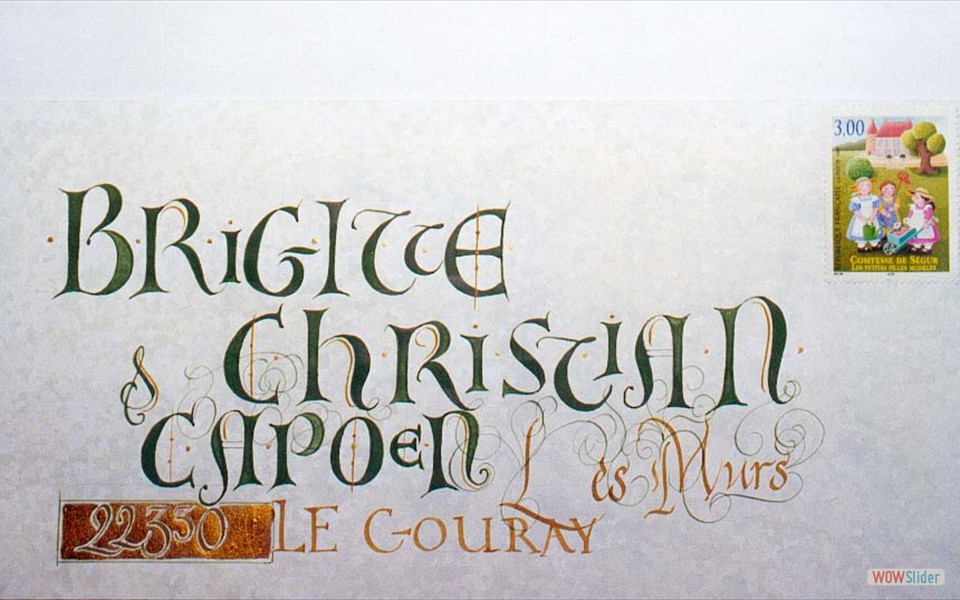 3,00
RÉPUBLIQUE FRANÇAISE
COMTESSE DE SÉGUR
LES PETITES FILLES MODÈLES
BRIGITTE
& CHRISTIAN
CAPOEN Les Murs
22330 LE GOURAY
WOWSlider